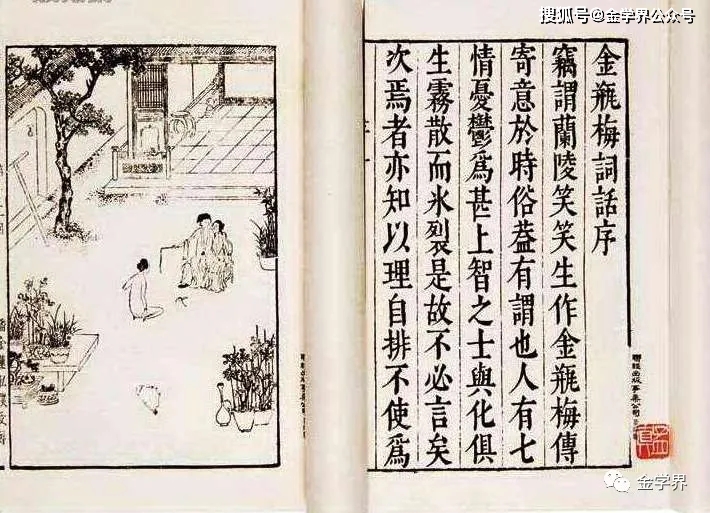 搜狐号@金学界公众号
金瓶梅詞話序
竊謂蘭陵笑笑生作金瓶梅傳
寄意於時俗葢有謂也人有七
情憂鬱爲甚上智之士與化俱
生霧散而氷裂是故不必言矣
次焉者亦知以理自排不使爲
聯經出版事業公司
金学界